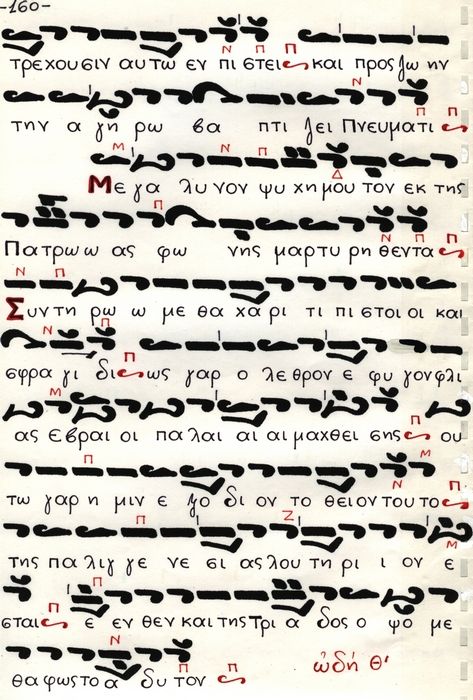 -160-
τρεχουσιν αυτω εν πι στει και προς ζω ην
την α γη ρω βα πτι ζει Πνευματι
Με γα λυ νον ψυ χη μου τον εκ της
Πατρω ω ας φω νης μαρτυ ρη θεντα
Συν τη ρω ω με θα χα ρι τι πι στοι οι και
σφρα γι δι ως γαρ ο λε θρον ε φυ γον φλι
ας Εβραι οι πα λαι αι αι μαχθει σης ου
τω γαρ η μιν ε ξο δι ον το θειον του το
της πα λιγ γε νε σι ας λου τη ρι ι ον ε
σται ε εν θεν και της τρι α δος ο ψο με
θα φως το α δυ τον ὠδή θ'